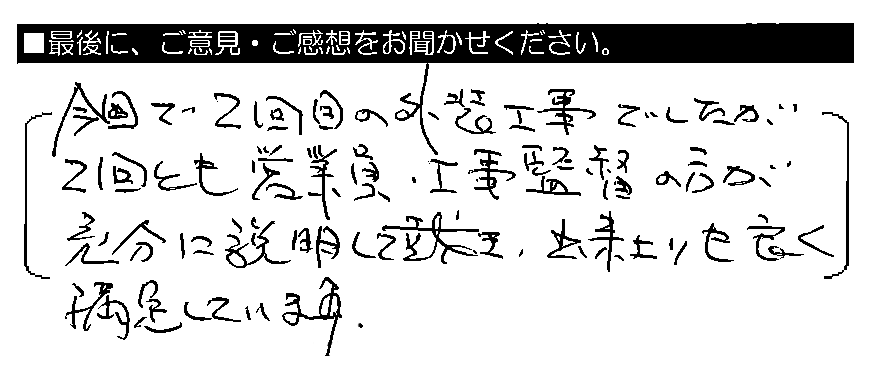 ■最後に、ご意見・ご感想をお聞かせください。
今回で2回目の外装工事でしたが
2回とも営業員・工事監督の方が
充分に説明して頂き、出来上りも良く
満足しています。